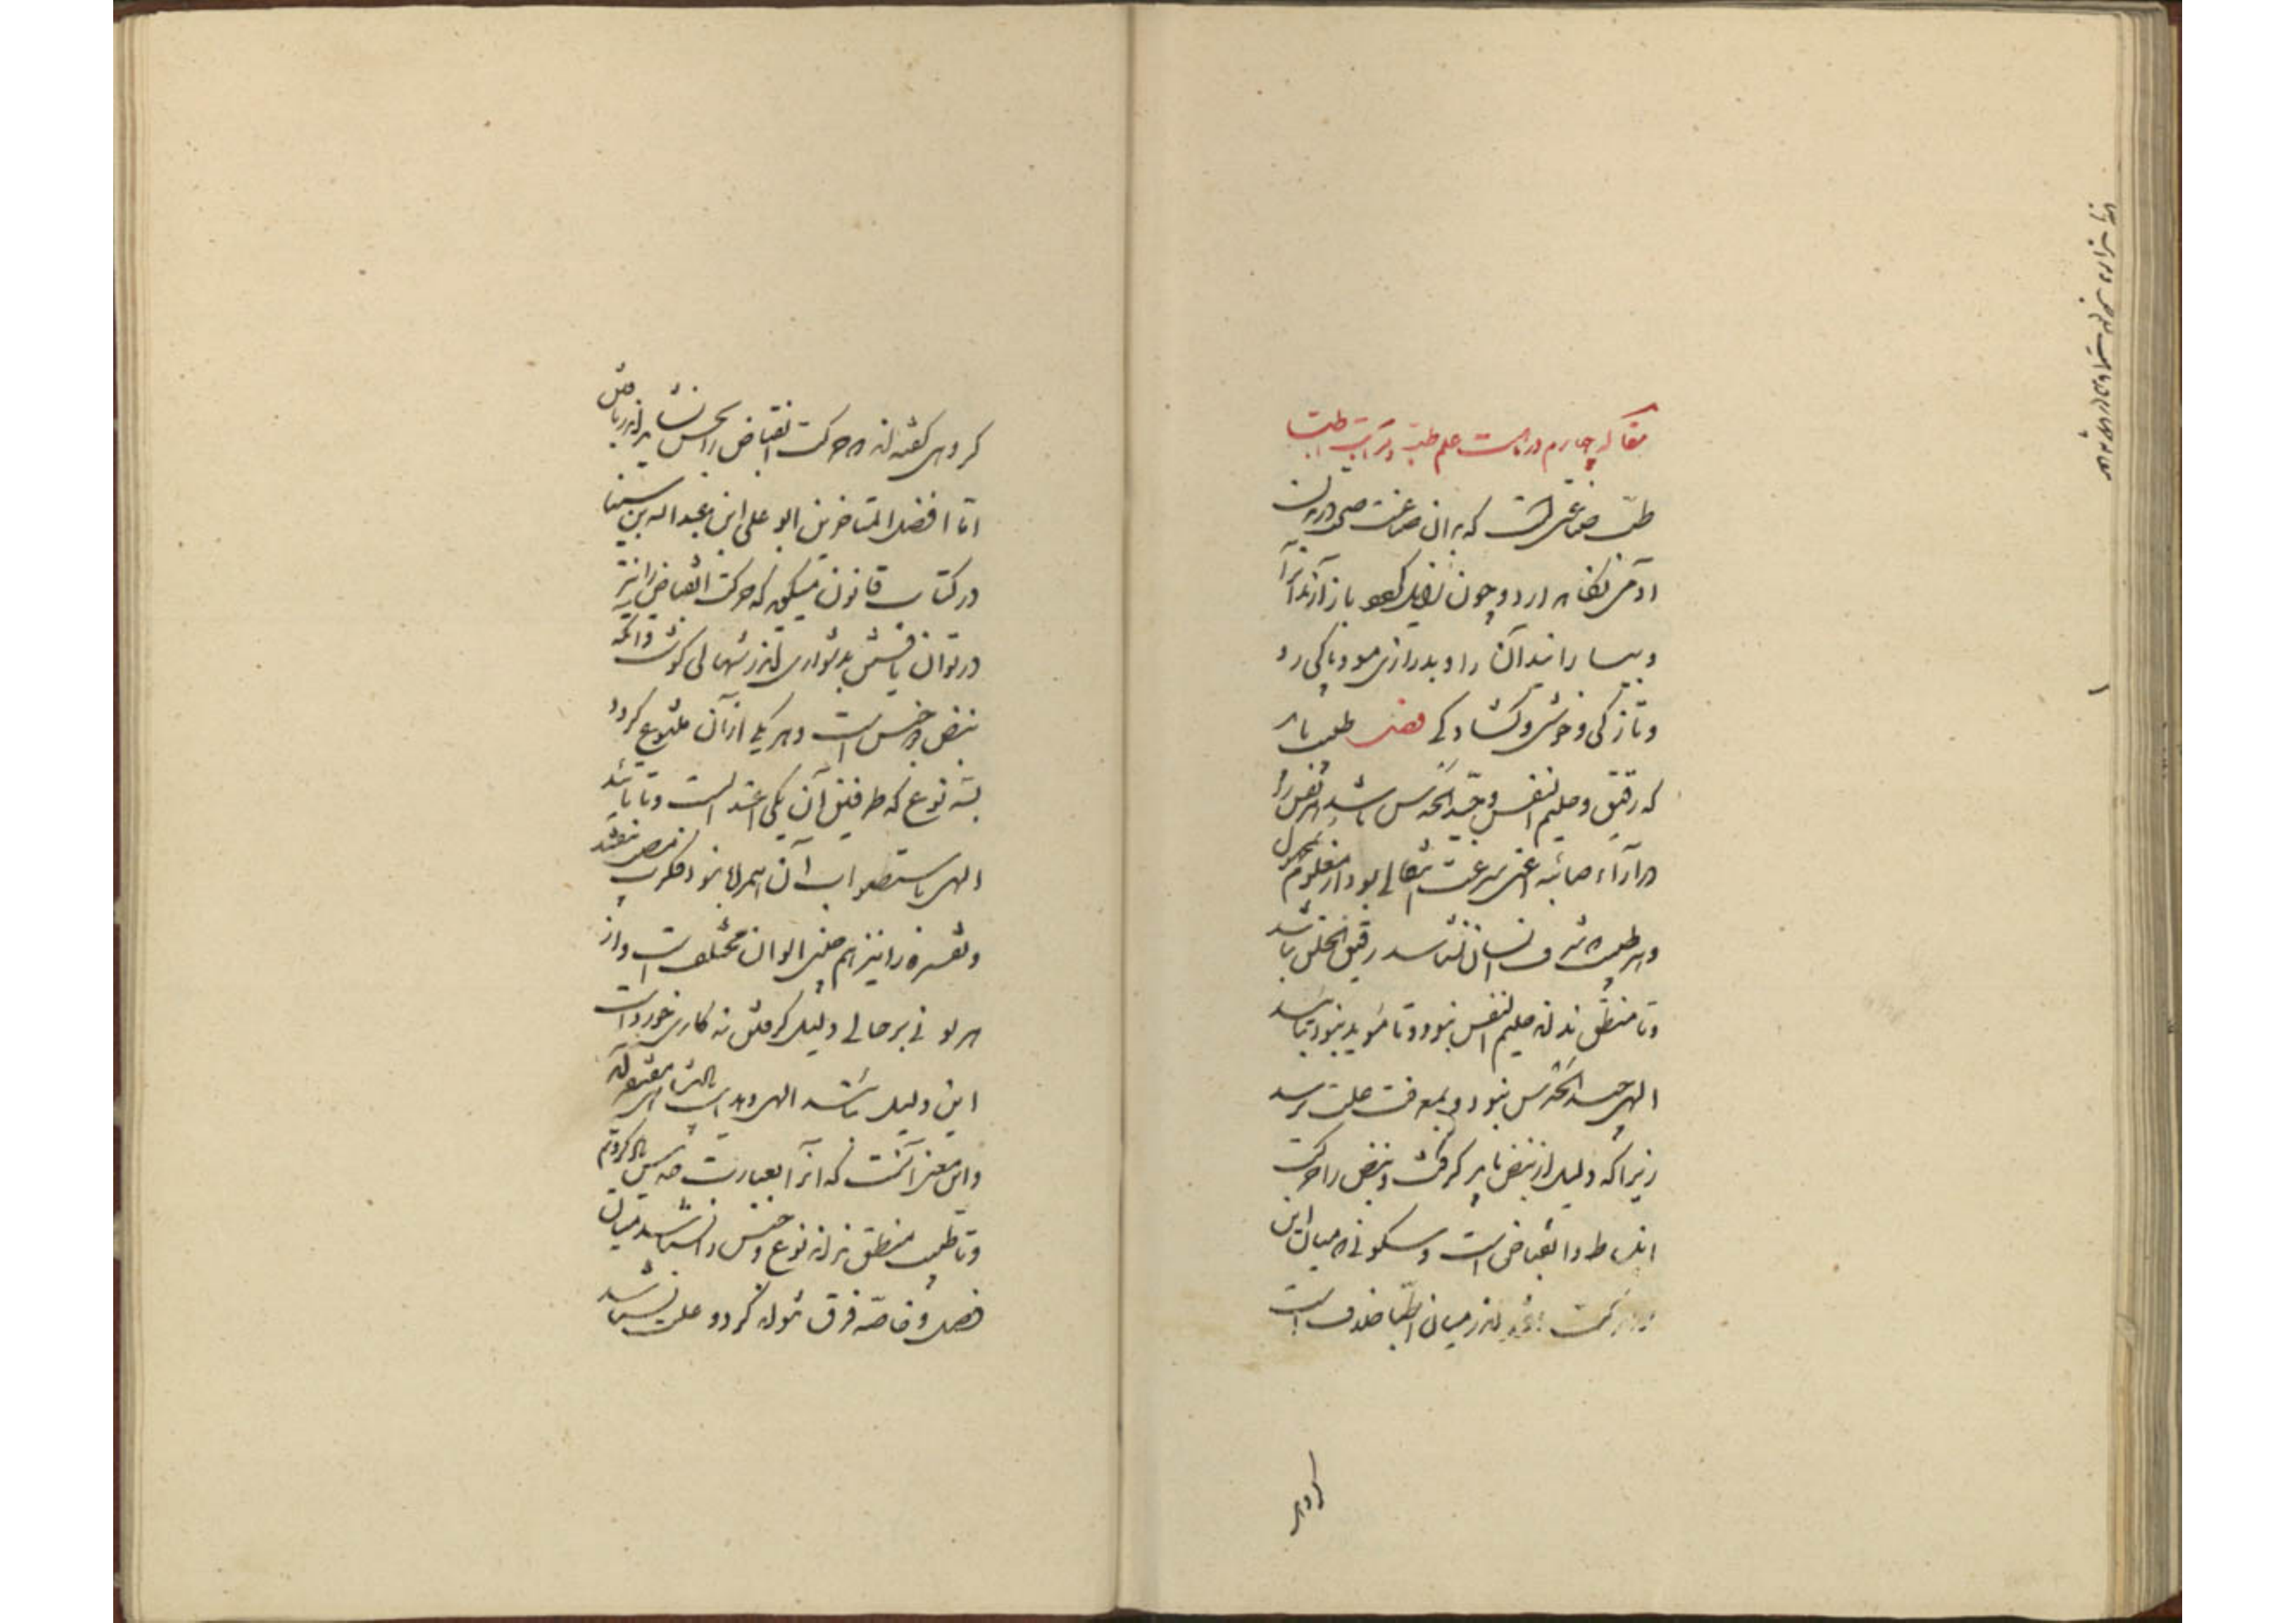 مقاله چهارم در ماهیت علم طب و مراتب اطبا
طب صناعتی است که بدان صناعت صحت در بدن
آدمی نگاه دارد و چون زایل شود باز آرند آنرا
و بیارایند آن را و بدرازی مو و پاکی رو
و تازگی و خوشی و کشادگی فصل طبیب باید
که رقیق و حلیم النفس و جید الحدس باشد هر نفس را
در آراء صائبه اعنی سرعت انتقالی بود از معلوم بمجهول
و هر طبیب که شرف انسان نشناسد رقیق الخلق نباشد
و تا منطق نداند حلیم النفس نبود و تا مؤید نبود بتائید
الهی جید الحدس نبود و بمعرفت علت نرسد
زیرا که دلیل از نبض باید گرفت و نبض را حرکت
انبساط و انقباض است و سکونی که میان این
دو حرکت افتد اندر میان اطبا خلاف است
گروهی
گروهی گفته‌اند که حرکت انقباض را بحس نشاید اندر یافتن
اما افضل المتاخرین ابو علی ابن عبدالله بن سینا
در کتاب قانون میگوید که حرکت انقباض را نیز
در توان یافتن بدشواری اندر تنهای کم گوشت و آنکه
نبض ده جنس است و هر یکی از آن متنوع گردد
بسه نوع که طرفین آن یکی اعتدالست و تا تائید
الهی باستصواب آن همراه نبود فکر مصیب نتواند
و تفسره را نیز هم چنین الوان مختلف است و از
هر لونی بر حالی دلیل گرفتن نه کاری خورد است
این دلیل باشد الهی و هدایت پادشاهی مفتقراند
و این معنی آنست که آنرا بعبارت حدس یاد کردیم
و تا طبیب منطق نداند نوع و جنس را نشناسد میان
فصل و خاصه فرق نتواند کرد و علت نشناسد